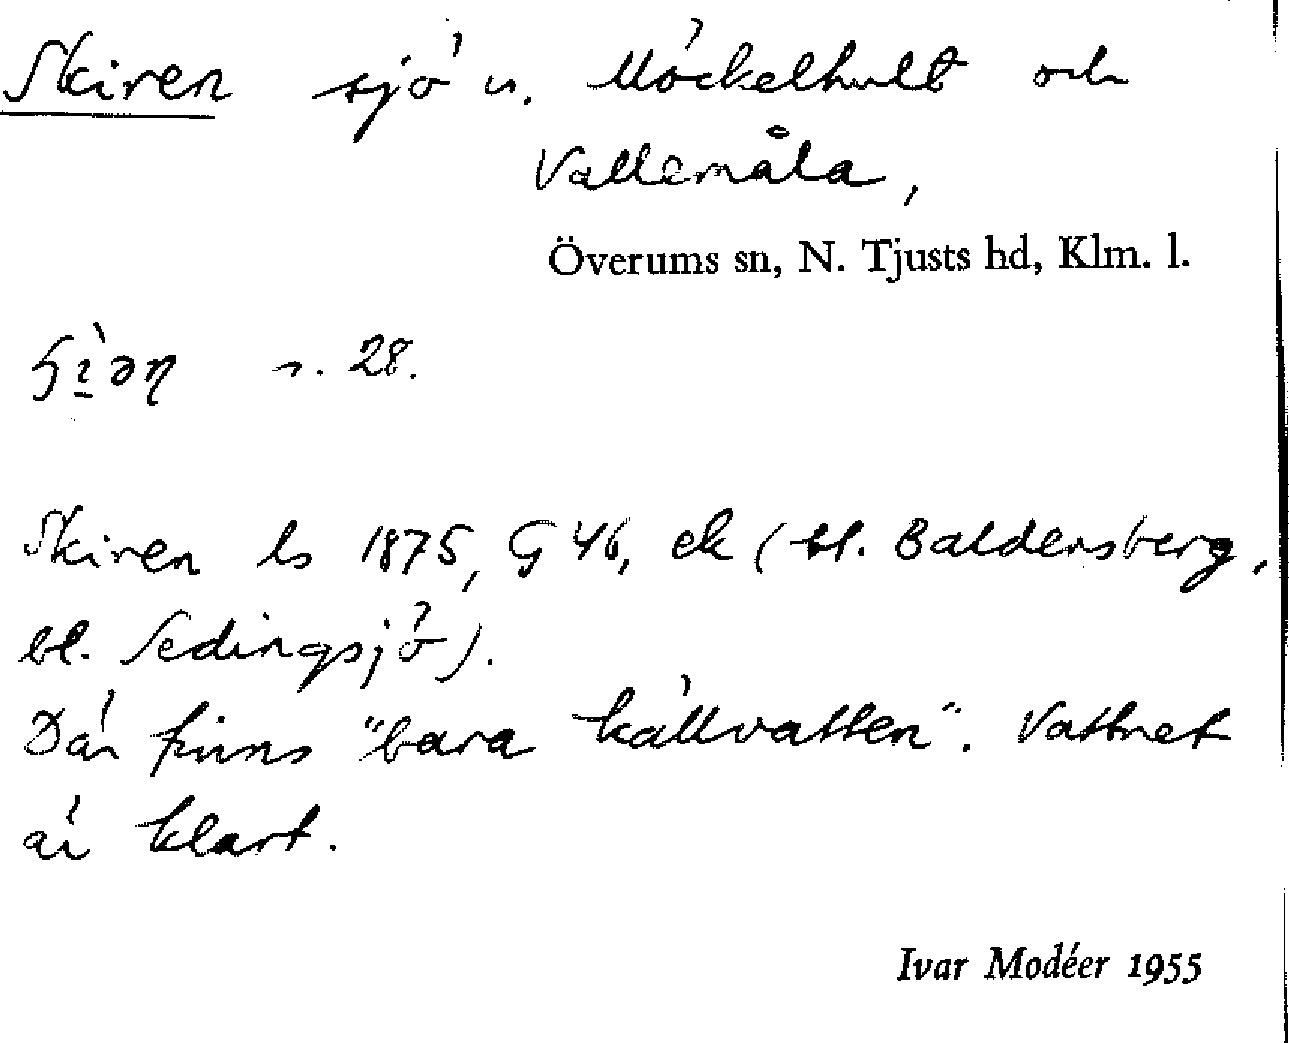 Skiren sjö u. Möckelhult och
Vallemåla,
Överums sn, N. Tjusts hd, Klm. l.
s. 28.
Skiren ls 1875, G 46, ek (bl. Baldersberg,
bl. Sedingsjö).
Där finns "bara källvatten". Vattnet
är klart.
Ivar Modéer 1955